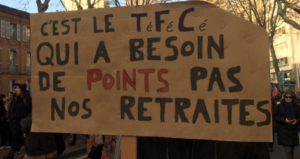 C'EST LE TéFéCé
QUI A BESOIN
DE POINTS PAS
NOS RETRAITES